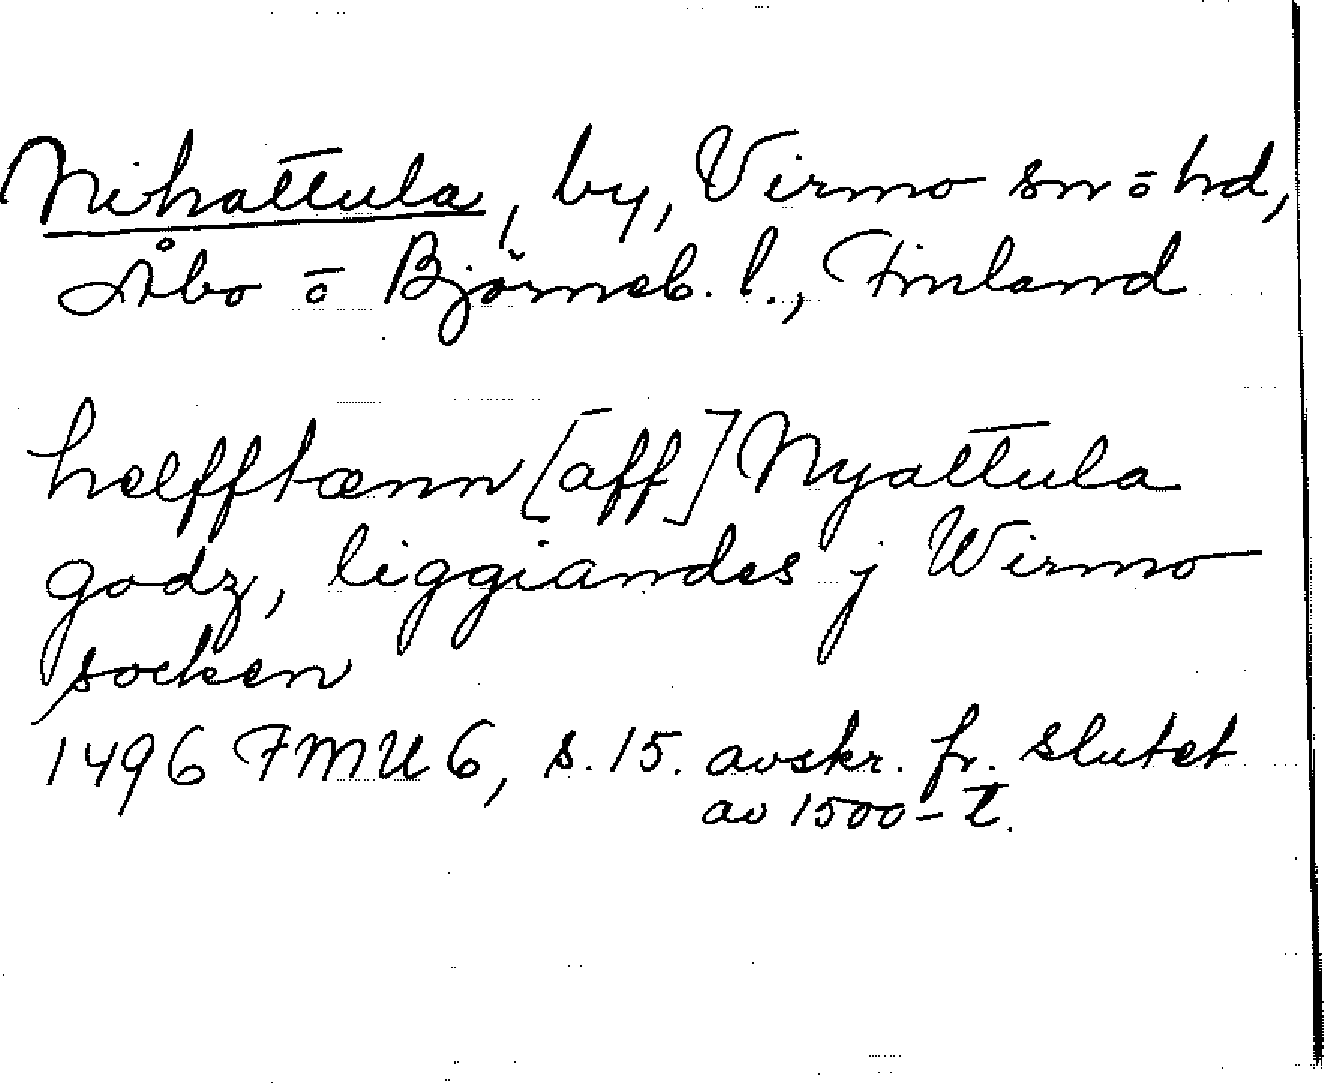 Nihattula, by, Virmo sn o hd,
Åbo o Björneb. l., Finland
helfftænn [aff] Nyattula
godz, liggiandes j Wirmo
socken
1496 FMU 6, s. 15. avskr. fr. slutet
av 1500-t.